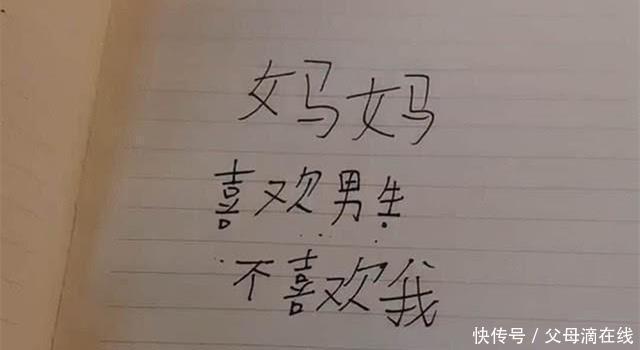 妈妈
喜欢男生
不喜欢我
快传号／父母滴在线